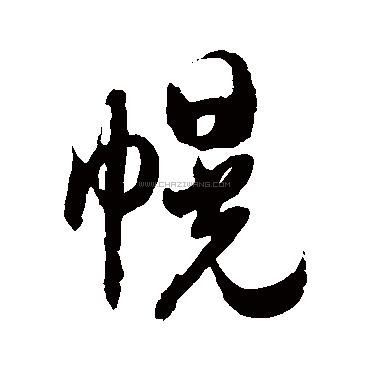 幌
WWW.CHAZIWANG.COM